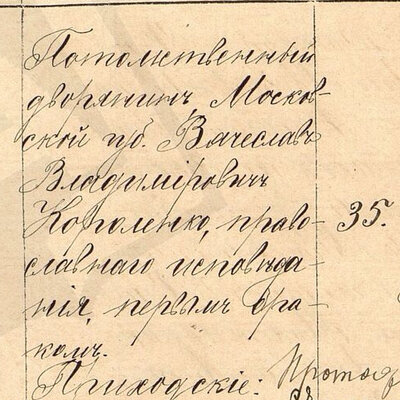 Потомственный
дворянинъ, Москов-
ской губ. Вячеславъ
Владиміровичъ
Короленко, право- 35.
славнаго исповѣда-
нія, первымъ бра-
комъ.
Приходскіе: